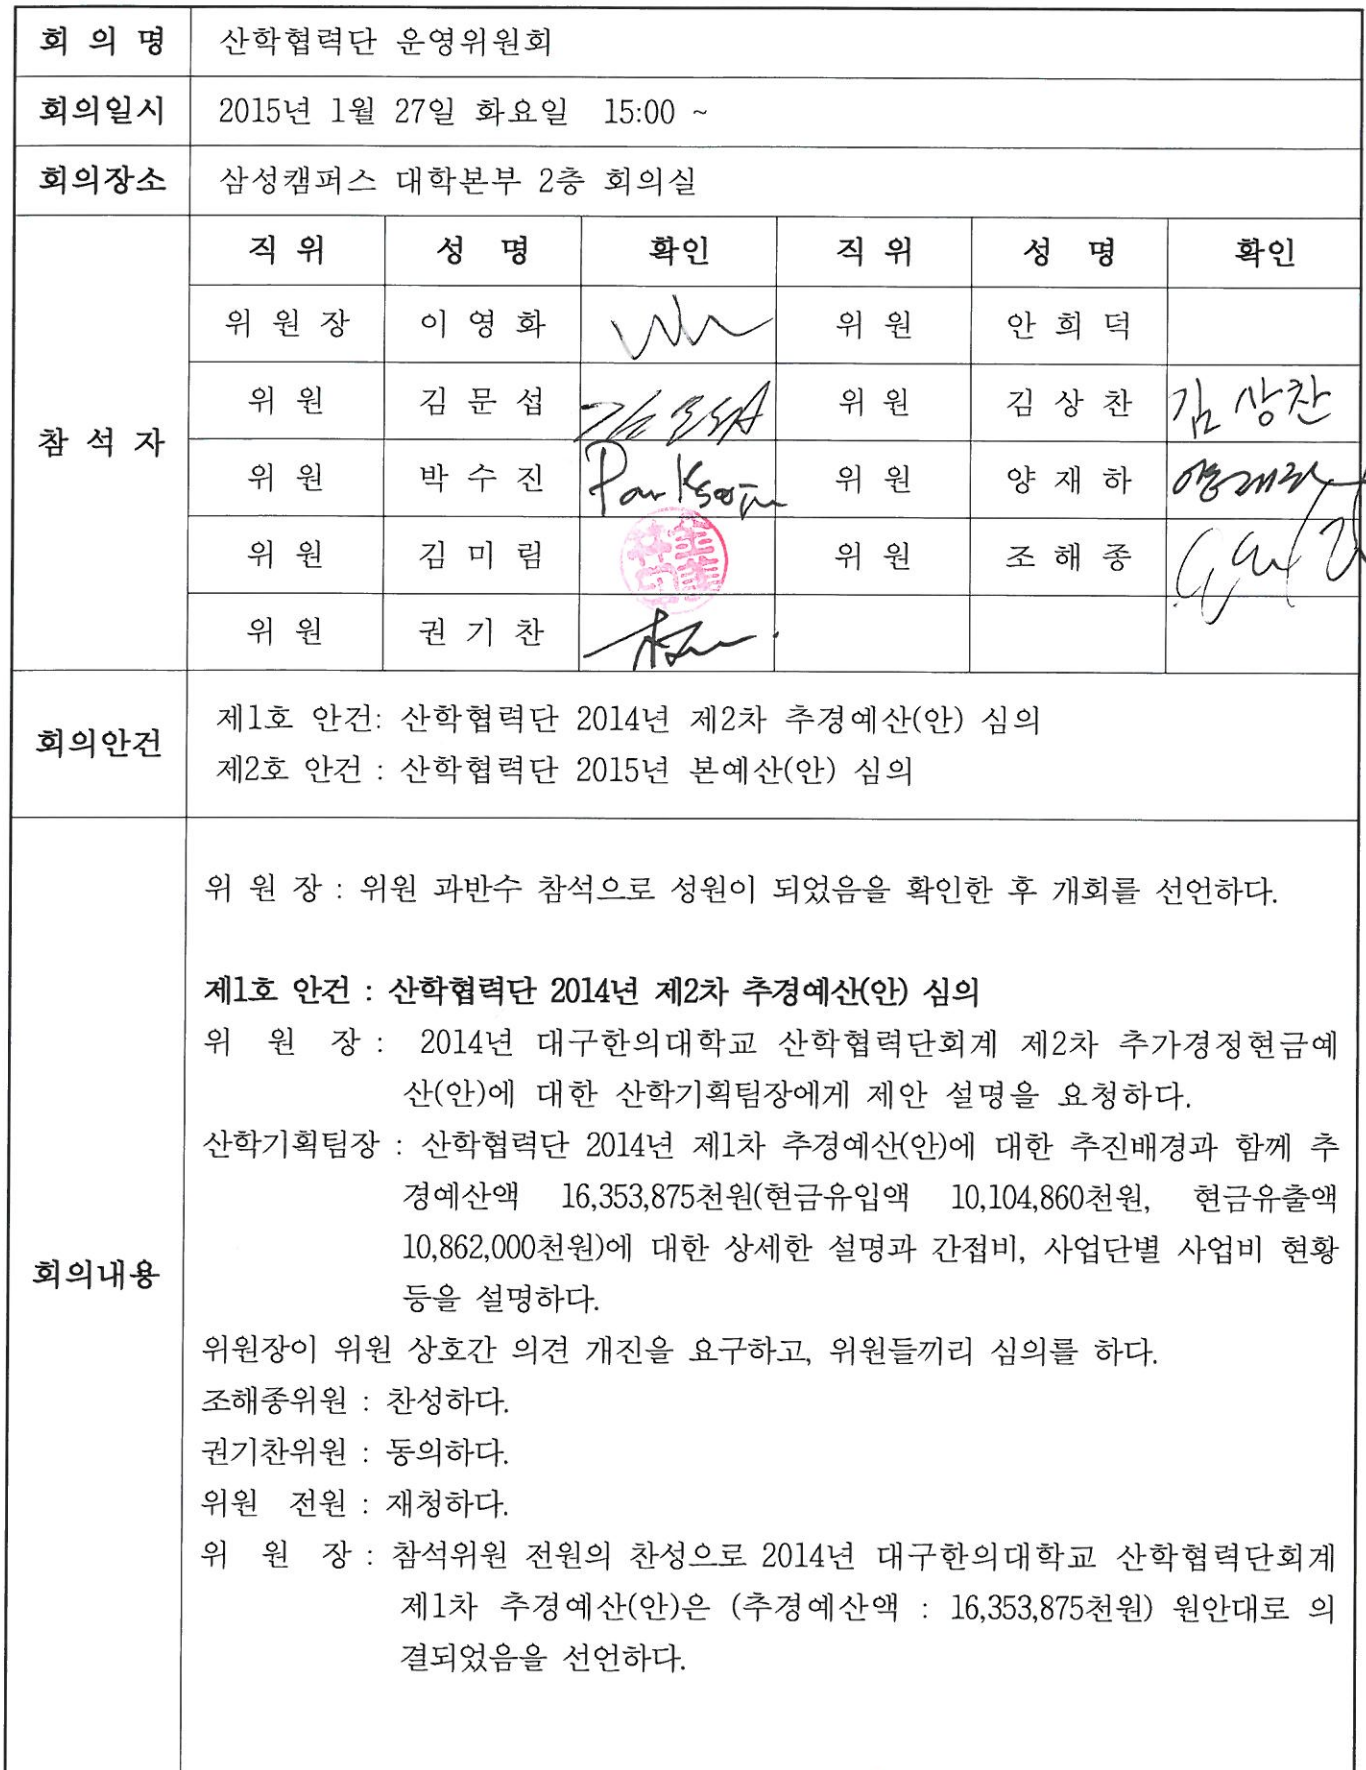 회 의 명 산학협력단 운영위원회
회의일시 2015년 1월 27일 화요일 15:00 ~
회의장소 삼성캠퍼스 대학본부 2층 회의실
참 석 자
직 위 성 명 확인 직 위 성 명 확인
위 원 장 이 영 화 위 원 안 희 덕
위 원 김 문 섭 위 원 김 상 찬 김상찬
위 원 박 수 진 Park 위 원 양 재 하
위 원 김 미 림 위 원 조 해 종
위 원 권 기 찬
회의안건
제1호 안건: 산학협력단 2014년 제2차 추경예산(안) 심의
제2호 안건 : 산학협력단 2015년 본예산(안) 심의
회의내용
위 원 장 : 위원 과반수 참석으로 성원이 되었음을 확인한 후 개회를 선언하다.
제1호 안건 : 산학협력단 2014년 제2차 추경예산(안) 심의
위 원 장 : 2014년 대구한의대학교 산학협력단회계 제2차 추가경정현금예
산(안)에 대한 산학기획팀장에게 제안 설명을 요청하다.
산학기획팀장 : 산학협력단 2014년 제1차 추경예산(안)에 대한 추진배경과 함께 추
경예산액 16,353,875천원(현금유입액 10,104,860천원, 현금유출액
10,862,000천원)에 대한 상세한 설명과 간접비, 사업단별 사업비 현황
등을 설명하다.
위원장이 위원 상호간 의견 개진을 요구하고, 위원들끼리 심의를 하다.
조해종위원 : 찬성하다.
권기찬위원 : 동의하다.
위원 전원 : 재청하다.
위 원 장 : 참석위원 전원의 찬성으로 2014년 대구한의대학교 산학협력단회계
제1차 추경예산(안)은 (추경예산액 : 16,353,875천원) 원안대로 의
결되었음을 선언하다.